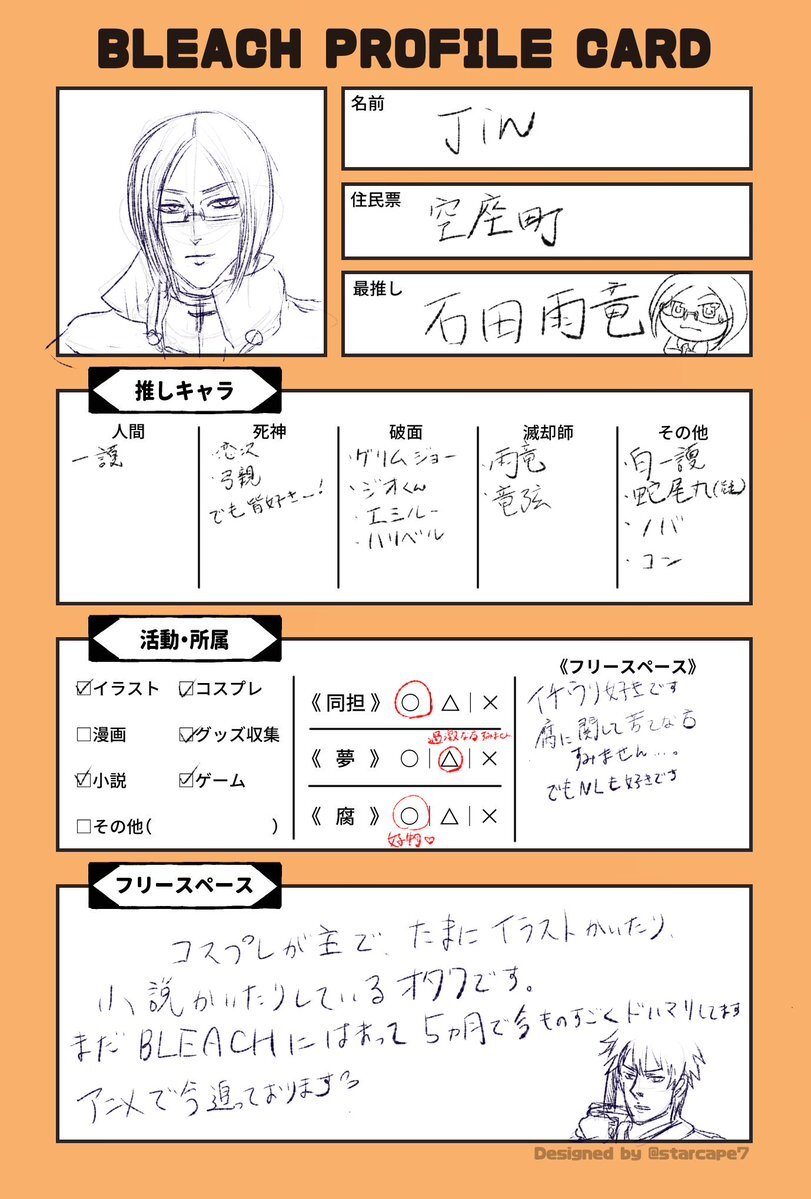 BLEACH PROFILE CARD
名前
JiN
住民票
空座町
最推し
石田雨竜
推しキャラ
人間
一護
死神
・恋次
・弓親
でも皆好きー!
破面
・グリムジョー
・ジオくん
・エミルー
・ハリベル
滅却師
・雨竜
・竜弦
その他
・白一護
・蛇尾丸
・ノバ
・コン
活動・所属
☑イラスト ☑コスプレ
□漫画 ☑グッズ収集
☑小説 ☑ゲーム
□その他( )
《同担》 ○|△|×
過激なるすみません
《 夢 》 ○|△|×
《 腐 》 ○|△|×
好物♡
《フリースペース》
イチウリ好きです
腐に関して苦てな方
すみません…。
でもNLも好きです
フリースペース
コスプレが主で、たまにイラストかいたり、
小説かいたりしているオタクです。
まだBLEACHにはまって5ヵ月で今ものすごくドハマりしてます
アニメで今追っております
Designed by @starcape7